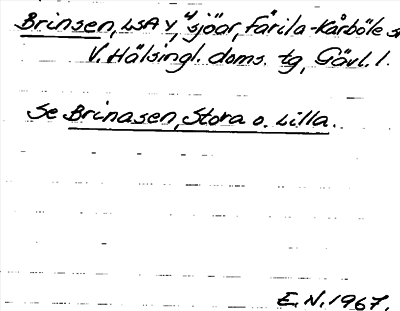 Brinsen, LSA Y, sjöar, Färila-Kårböle s
V. Hälsingl. doms. tg, Gävl. l.
Se Brinasen, Stora o. Lilla.
E. N. 1967.